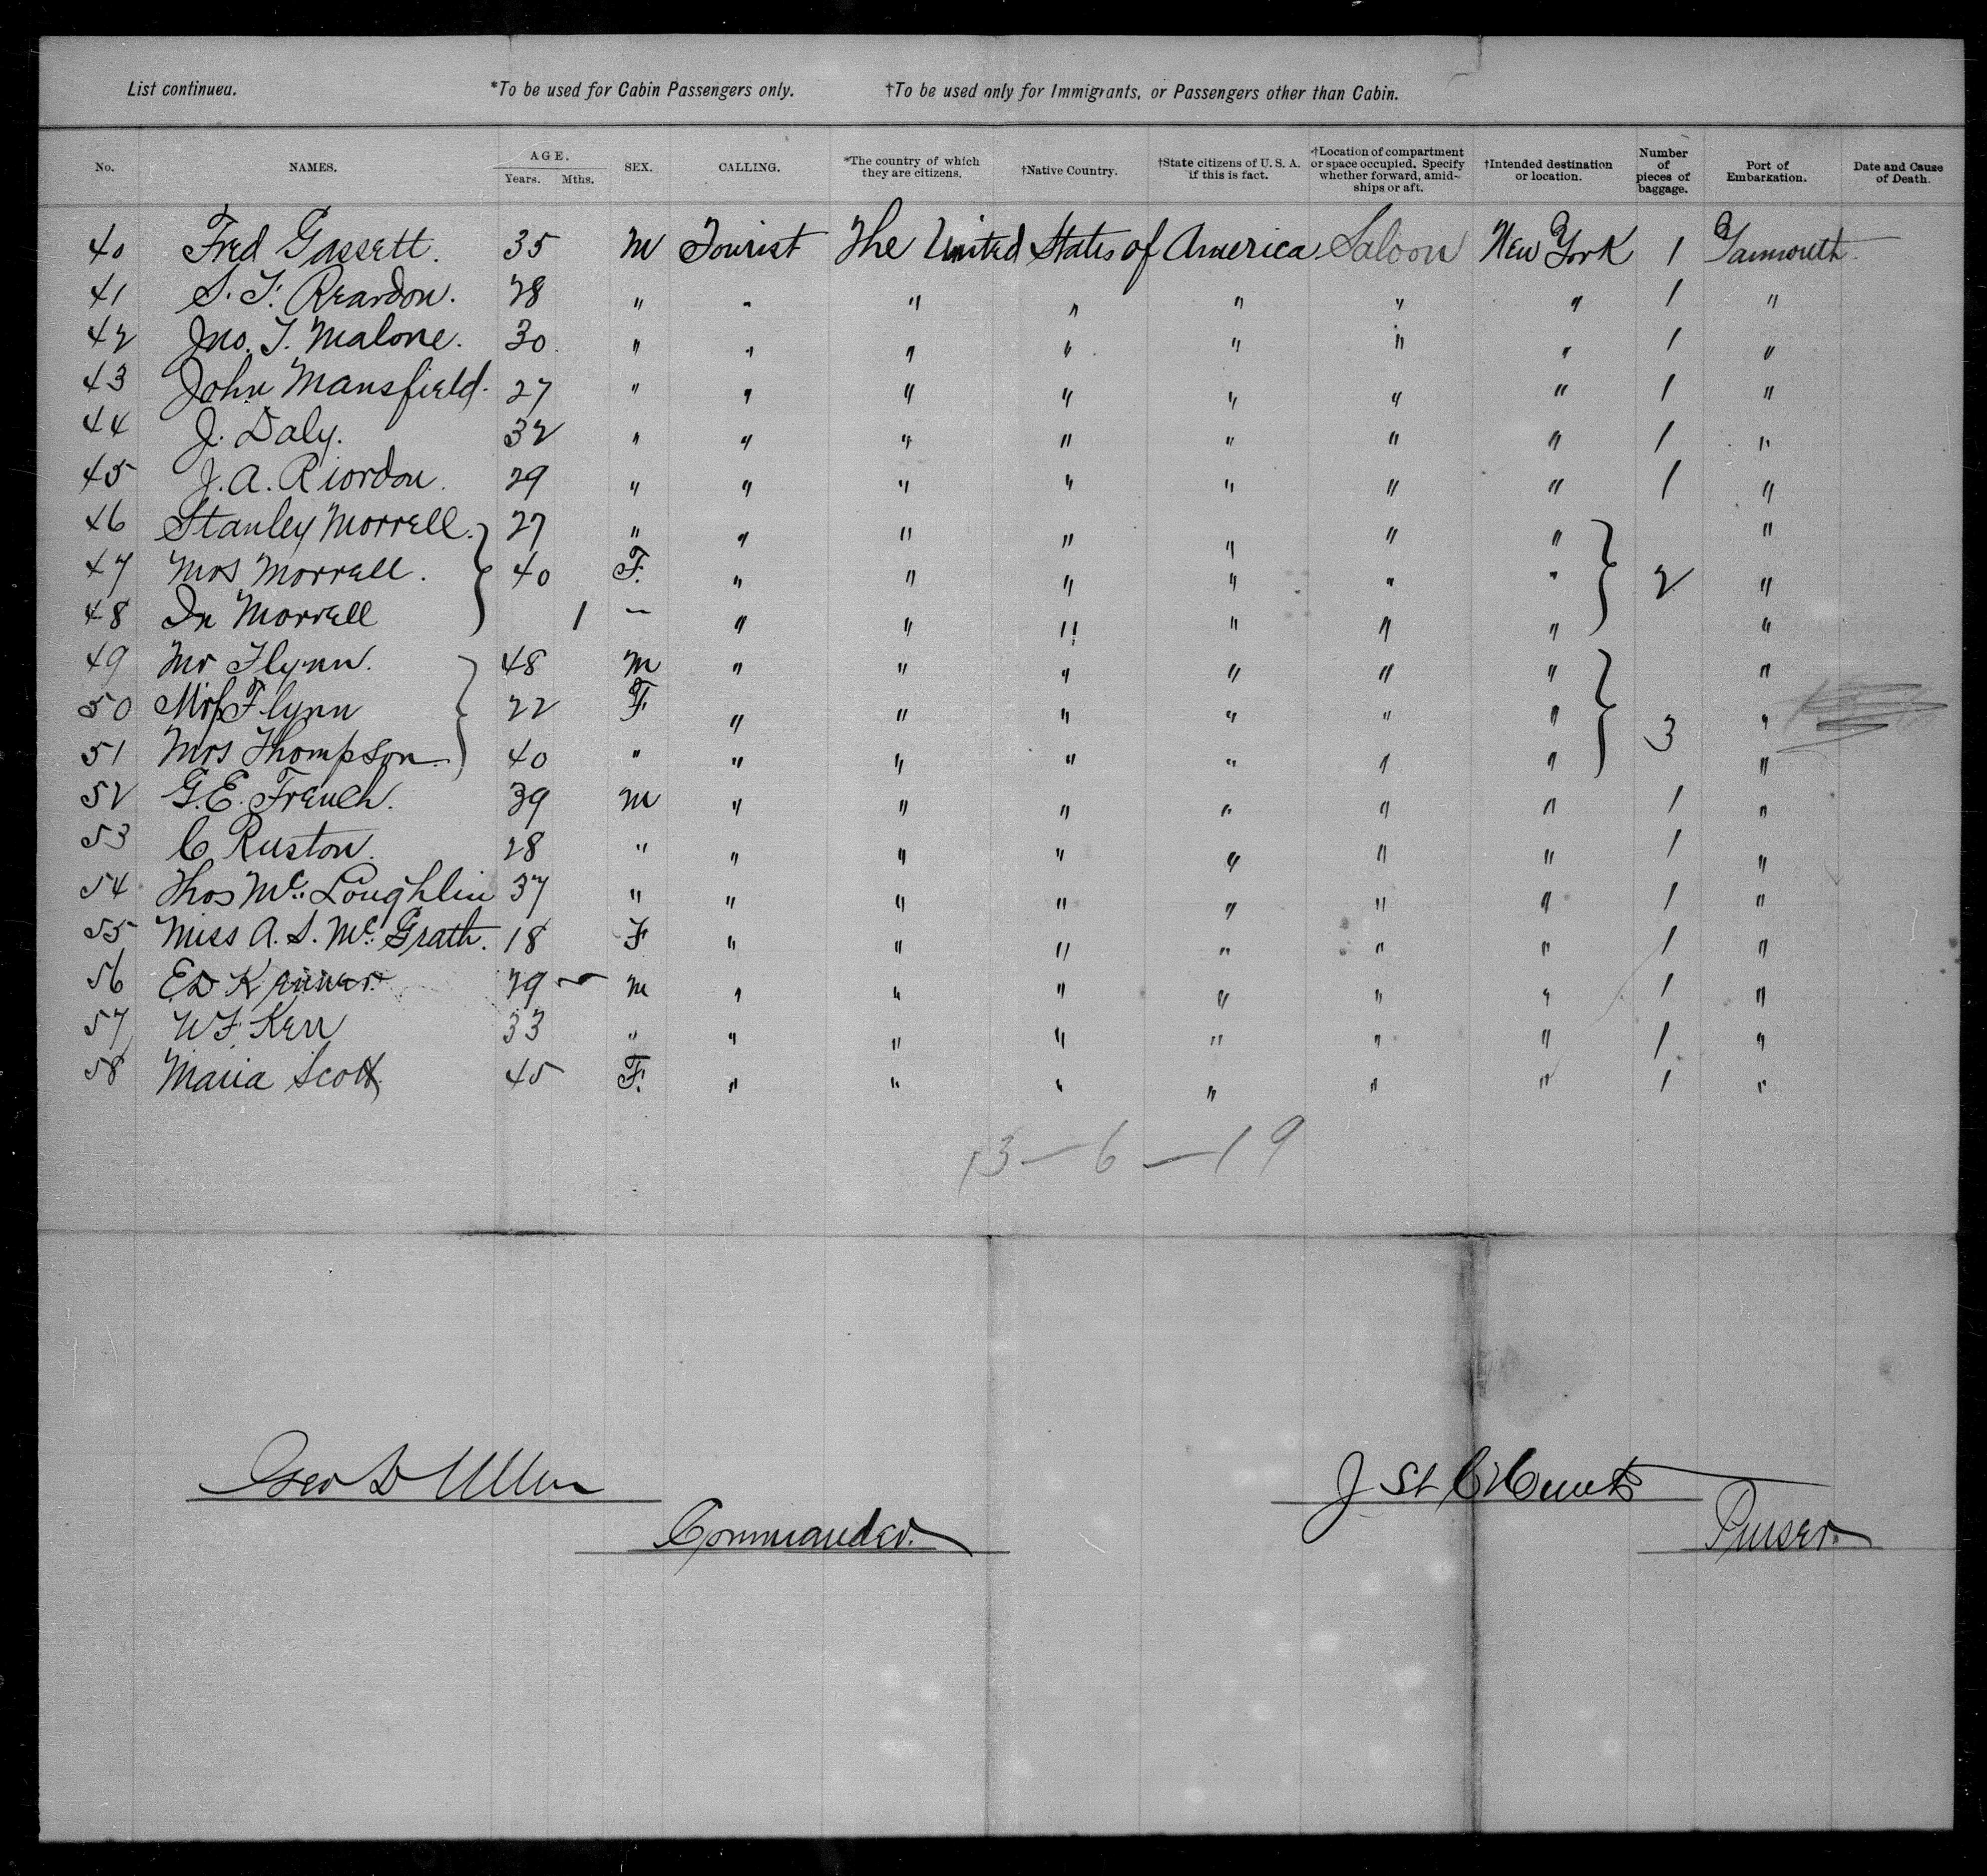 List continued. *To be used for Cabin Passengers only. †To be used only for Immigrants, or Passengers other than Cabin.
No. NAMES. AGE. Years. Mths. SEX. CALLING. *The country of which they are citizens. †Native Country. †State citizens of U. S. A. if this is fact. *†Location of compartment or space occupied. Specify whether forward, amid-ships or aft. †Intended destination or location. Number of pieces of baggage. Port of Embarkation. Date and Cause of Death.
40 Fred Gassett. 35 M Tourist The United States of America Saloon New York 1 Yarmouth
41 S. F. Reardon. 28 " " " " " " " 1 "
42 Jno. T. Malone. 30 " " " " " " " 1 "
43 John Mansfield. 27 " " " " " " " 1 "
44 J. Daly. 32 " " " " " " " 1 "
45 J. A. Riordon. 29 " " " " " " " 1 "
46 Stanley Morrell. 27 " " " " " " " "
47 Mrs Morrell. 40 F. " " " " " " 2 "
48 In Morrell 1 – " " " " " " "
49 Mr Flynn. 48 M " " " " " " "
50 Flynn 22 F " " " " " " "
51 Mrs Thompson. 40 " " " " " " " 3 "
52 G. E. French. 39 M " " " " " " 1 "
53 C Ruston. 28 " " " " " " " 1 "
54 Thos Mc. Loughlin 37 " " " " " " " 1 "
55 Miss A. S. Mc. Grath. 18 F " " " " " " 1 "
56 ED 29 – M " " " " " " 1 "
57 W F. Kerr 33 " " " " " " " 1 "
58 Maria Scott. 45 F. " " " " " " 1 "
13 – 6 – 19
Geo D Allen
J St C
Commander.
Purser.